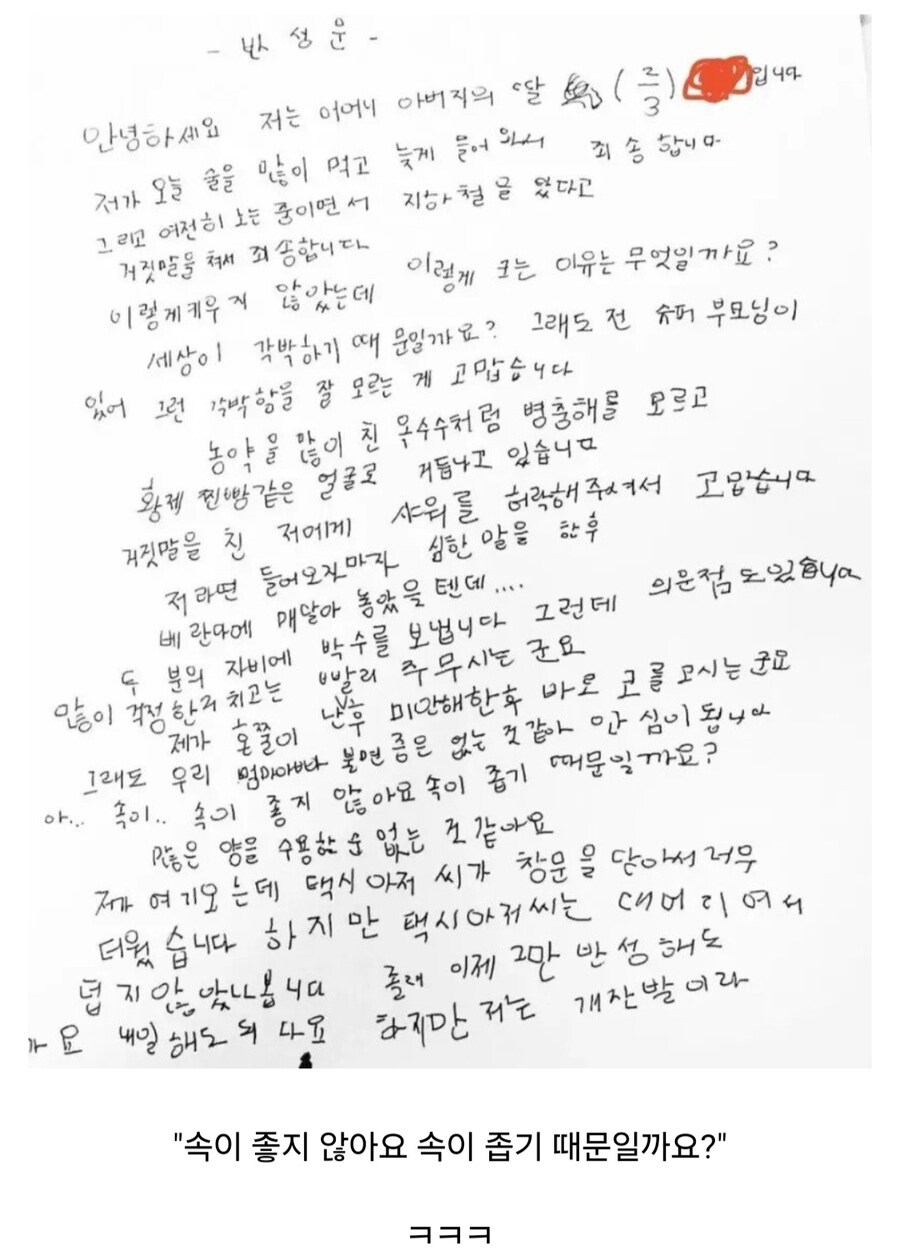 - 반성문 -
안녕하세요 저는 어머니 아버지의 딸 (2/3) 입니다
저가 오늘 술을 많이 먹고 늦게 들어와서 죄송합니다
그리고 여전히 노는 중이면서 지하철을 탔다고
거짓말을 쳐서 죄송합니다
이렇게 키우지 않았는데 이렇게 크는 이유는 무엇일까요?
세상이 각박하기 때문일까요? 그래도 전 슈퍼 부모님이
있어 그런 각박함을 잘 모르는 게 고맙습니다
농약을 많이 친 옥수수처럼 병충해를 모르고
황제 찐빵같은 얼굴로 거듭나고 있습니다
거짓말을 친 저에게 샤워를 허락해주셔서 고맙습니다
저라면 들어오자마자 심한 말을 한 후
베란다에 매달아 놓았을 텐데....
두 분의 자비에 박수를 보냅니다 그런데 의문점도 있습니다
많이 걱정한거 치고는 빨리 주무시는 군요
제가 혼쭐이 난 후 미안해한 후 바로 코를 고시는 군요
그래도 우리 엄마아빠 불면증은 없는 것 같아 안심이 됩니다
아... 속이.. 속이 좋지 않아요 속이 좁기 때문일까요?
많은 양을 수용할 순 없는 것 같아요
제가 여기 오는데 택시 아저씨가 창문을 닫아서 너무
더웠습니다 하지만 택시아저씨는 대머리여서
덥지 않았나봅니다 졸려 이제 그만 반성해도
내일 해도 되 다요 하지만 저는 개잔발이라
"속이 좋지 않아요 속이 좁기 때문일까요?"
ㅋㅋㅋ